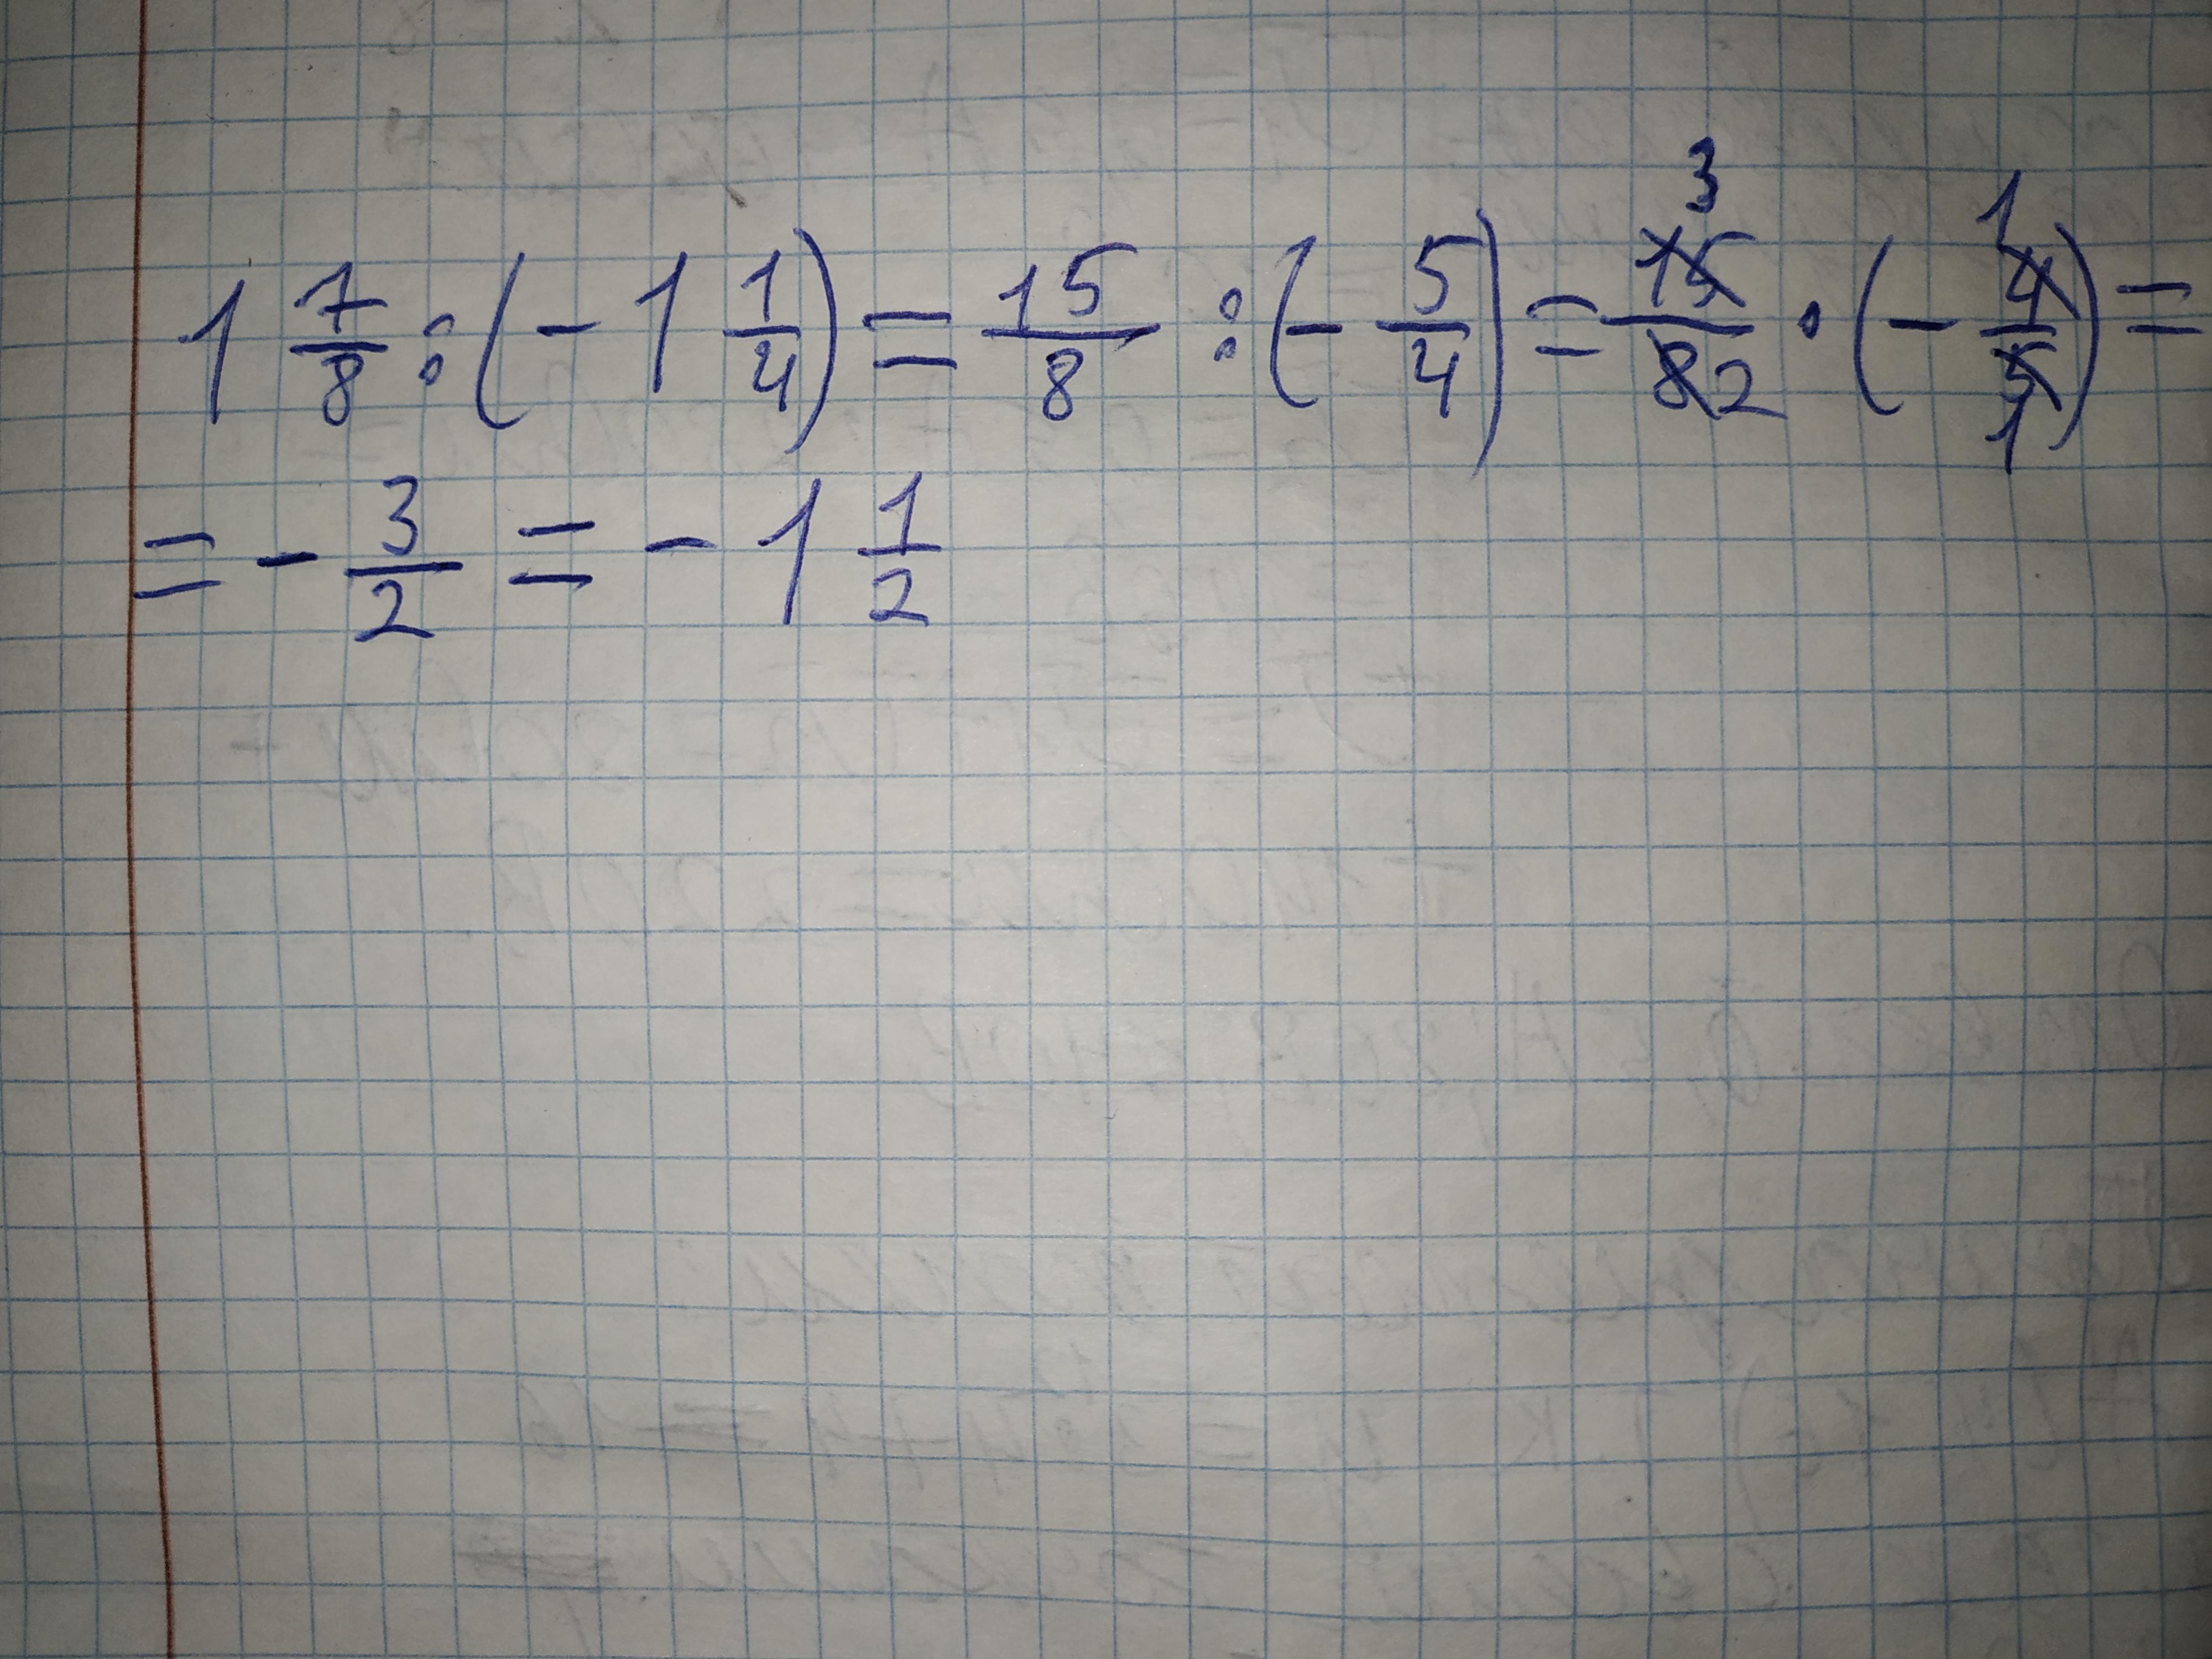 1 7/8 : (- 1 1/4) = 15/8 : (- 5/4) = 15 3/8 2 · (- 4 1/5 1) =
= - 3/2 = - 1 1/2